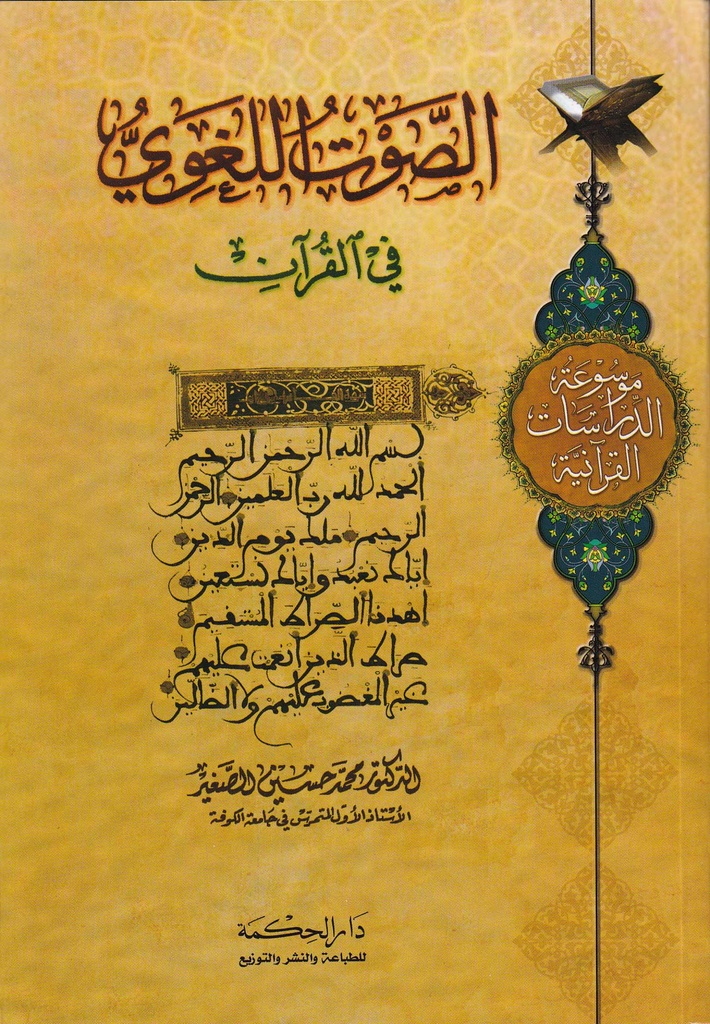 الصَّوْتُ اللُّغَوِيُّ
فِي القُرآنِ
مَوْسُوعَةُ
الدِّرَاسَات
القُرآنِيَّة
بسم الله الرحمن الرحيم
الحمد لله رب العلمين الرحمن
الرحيم ملك يوم الدين
اياك نعبد واياك نستعين
اهدنا الصراط المستقيم
صراط الذين انعمت عليهم
غير المغضوب عليهم ولا الضالين
الدكتور محمد حسين الصغير
الأستاذ الأول المتمرس في جامعة الكوفة
دار الحكمة
للطباعة والنشر والتوزيع